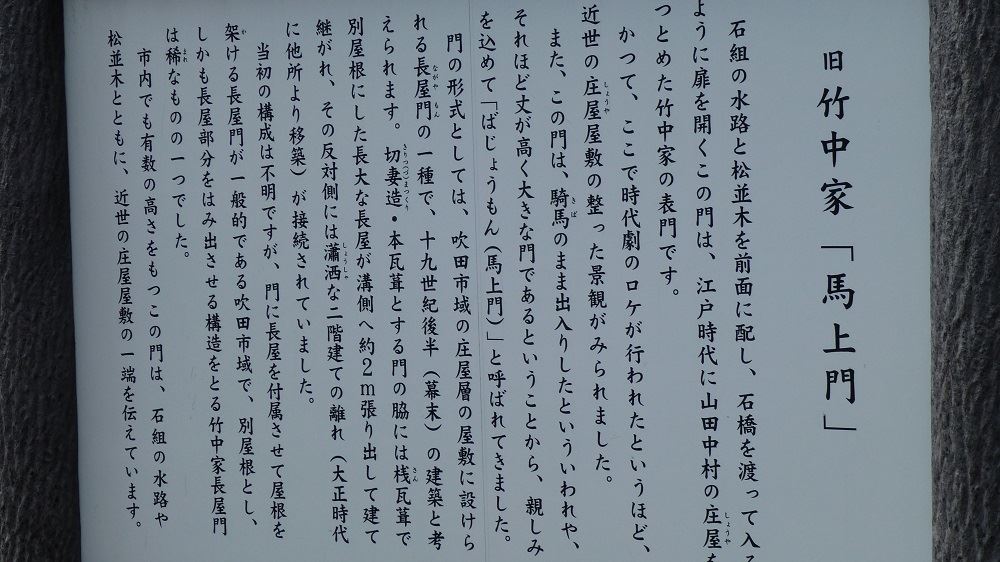 旧竹中家「馬上門」
石組の水路と松並木を前面に配し、石橋を渡って入る
ように扉を開くこの門は、江戸時代に山田中村の庄屋を
つとめた竹中家の表門です。
かつて、ここで時代劇のロケが行われたというほど、
近世の庄屋屋敷の整った景観がみられました。
また、この門は、騎馬のまま出入りしたといういわれや、
それほど丈が高く大きな門であるということから、親しみ
を込めて「ばじょうもん(馬上門)」と呼ばれてきました。
門の形式としては、吹田市域の庄屋層の屋敷に設けら
れる長屋門の一種で、十九世紀後半(幕末)の建築と考
えられます。切妻造・本瓦葺とする門の脇には桟瓦葺で
別屋根にした長大な長屋が溝側へ約2m張り出して建て
継がれ、その反対側には瀟洒な二階建ての離れ(大正時代
に他所より移築)が接続されていました。
当初の構成は不明ですが、門に長屋を付属させて屋根を
架ける長屋門が一般的である吹田市域で、別屋根とし、
しかも長屋部分をはみ出させる構造をとる竹中家長屋門
は稀なものの一つでした。
市内でも有数の高さをもつこの門は、石組の水路や
松並木とともに、近世の庄屋屋敷の一端を伝えています。